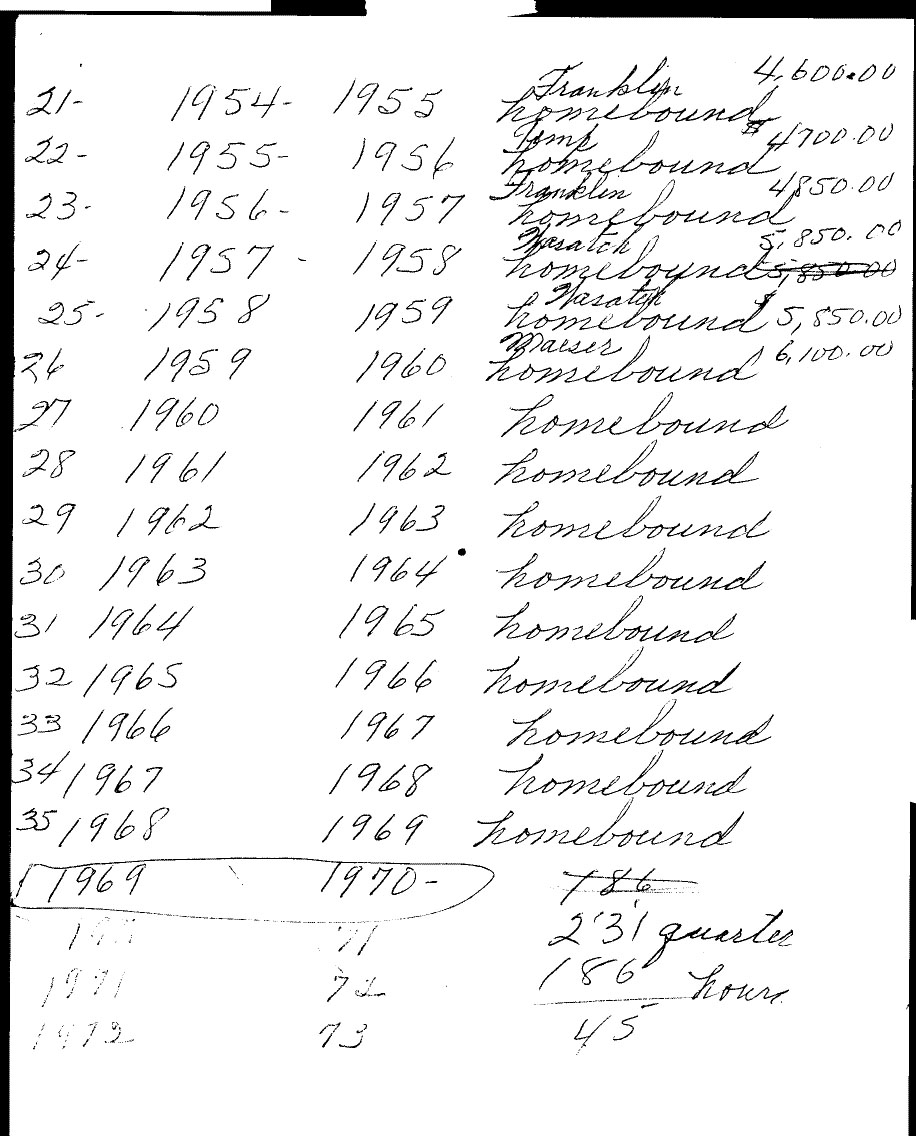 Franklin 4,600.00
21- 1954- 1955 homebound
Temp $4700.00
22- 1955- 1956 homebound
Franklin 4,850.00
23- 1956- 1957 homebound
Wasatch 5,850.00
24- 1957 - 1958 homebound 5,850.00
Wasatch
25- 1958 1959 homebound $5,850.00
Maeser 6,100.00
26 1959 1960 homebound
27 1960 1961 homebound
28 1961 1962 homebound
29 1962 1963 homebound
30 1963 1964 homebound
31 1964 1965 homebound
32 1965 1966 homebound
33 1966 1967 homebound
34 1967 1968 homebound
35 1968 1969 homebound
1969 1970- 186
71 231 quarter
1971 72 186 hours
1972 73 45